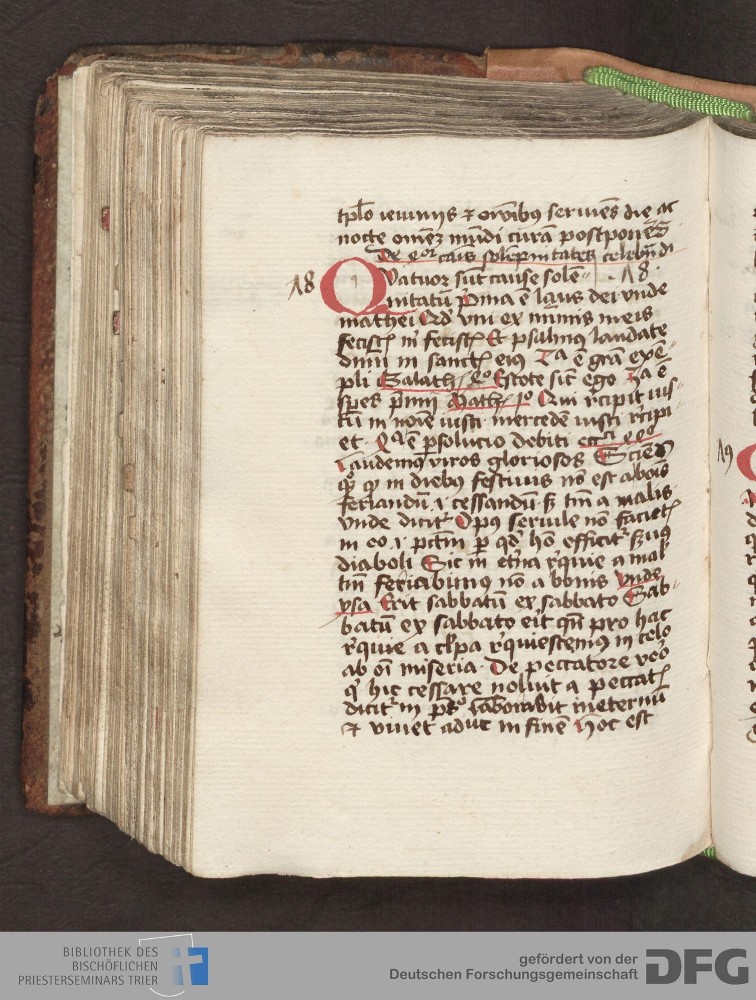 tplo ieiuniis ⁊ oronibus seruiens die ac
nocte omnem mundi curam postponendo
De 4or causis solempnitates celebrandi
18 Quatuor sunt cause solem- · 18 ·
nitatum prima e laus dei vnde
mathei Qd vni ex minimis meis
fecistis mi fecistis Et psalmus laudate
dnm in sanctis eius 2a e gra exem
pli Galath 4o Estote sic ego 3a e
spes premii Math 10 Qui recipit ius-
tum in noie iusti mercedem iusti recipi
et · 4a e psolucio debiti ecci 44o
laudemus viros gloriosos Sciendum
qp in diebus festiuis non est a bonis
feriandum ⁊ cessandum sz tm a malis
vnde dicitur Opus seruile non facietis
in eo ⁊ pctm p qd ho efficitur seruus
diaboli Sic in eterna requie a mal
tm feriabimus no a bonis vnde
ysa Erit sabbatum ex sabbato Sab-
batum ex sabbato erit qn pro hac
requie a culpa requiescemus in celo
ab oi miseria · De peccatore vero
q hic cessare noluit a peccatis
dicitur in ps laborabit in eternum
⁊ viuet aduc in finem Hoc est
19
BIBLIOTHEK DES
BISCHÖFLICHEN
PRIESTERSEMINARS TRIER
gefördert von der
Deutschen Forschungsgemeinschaft
DFG